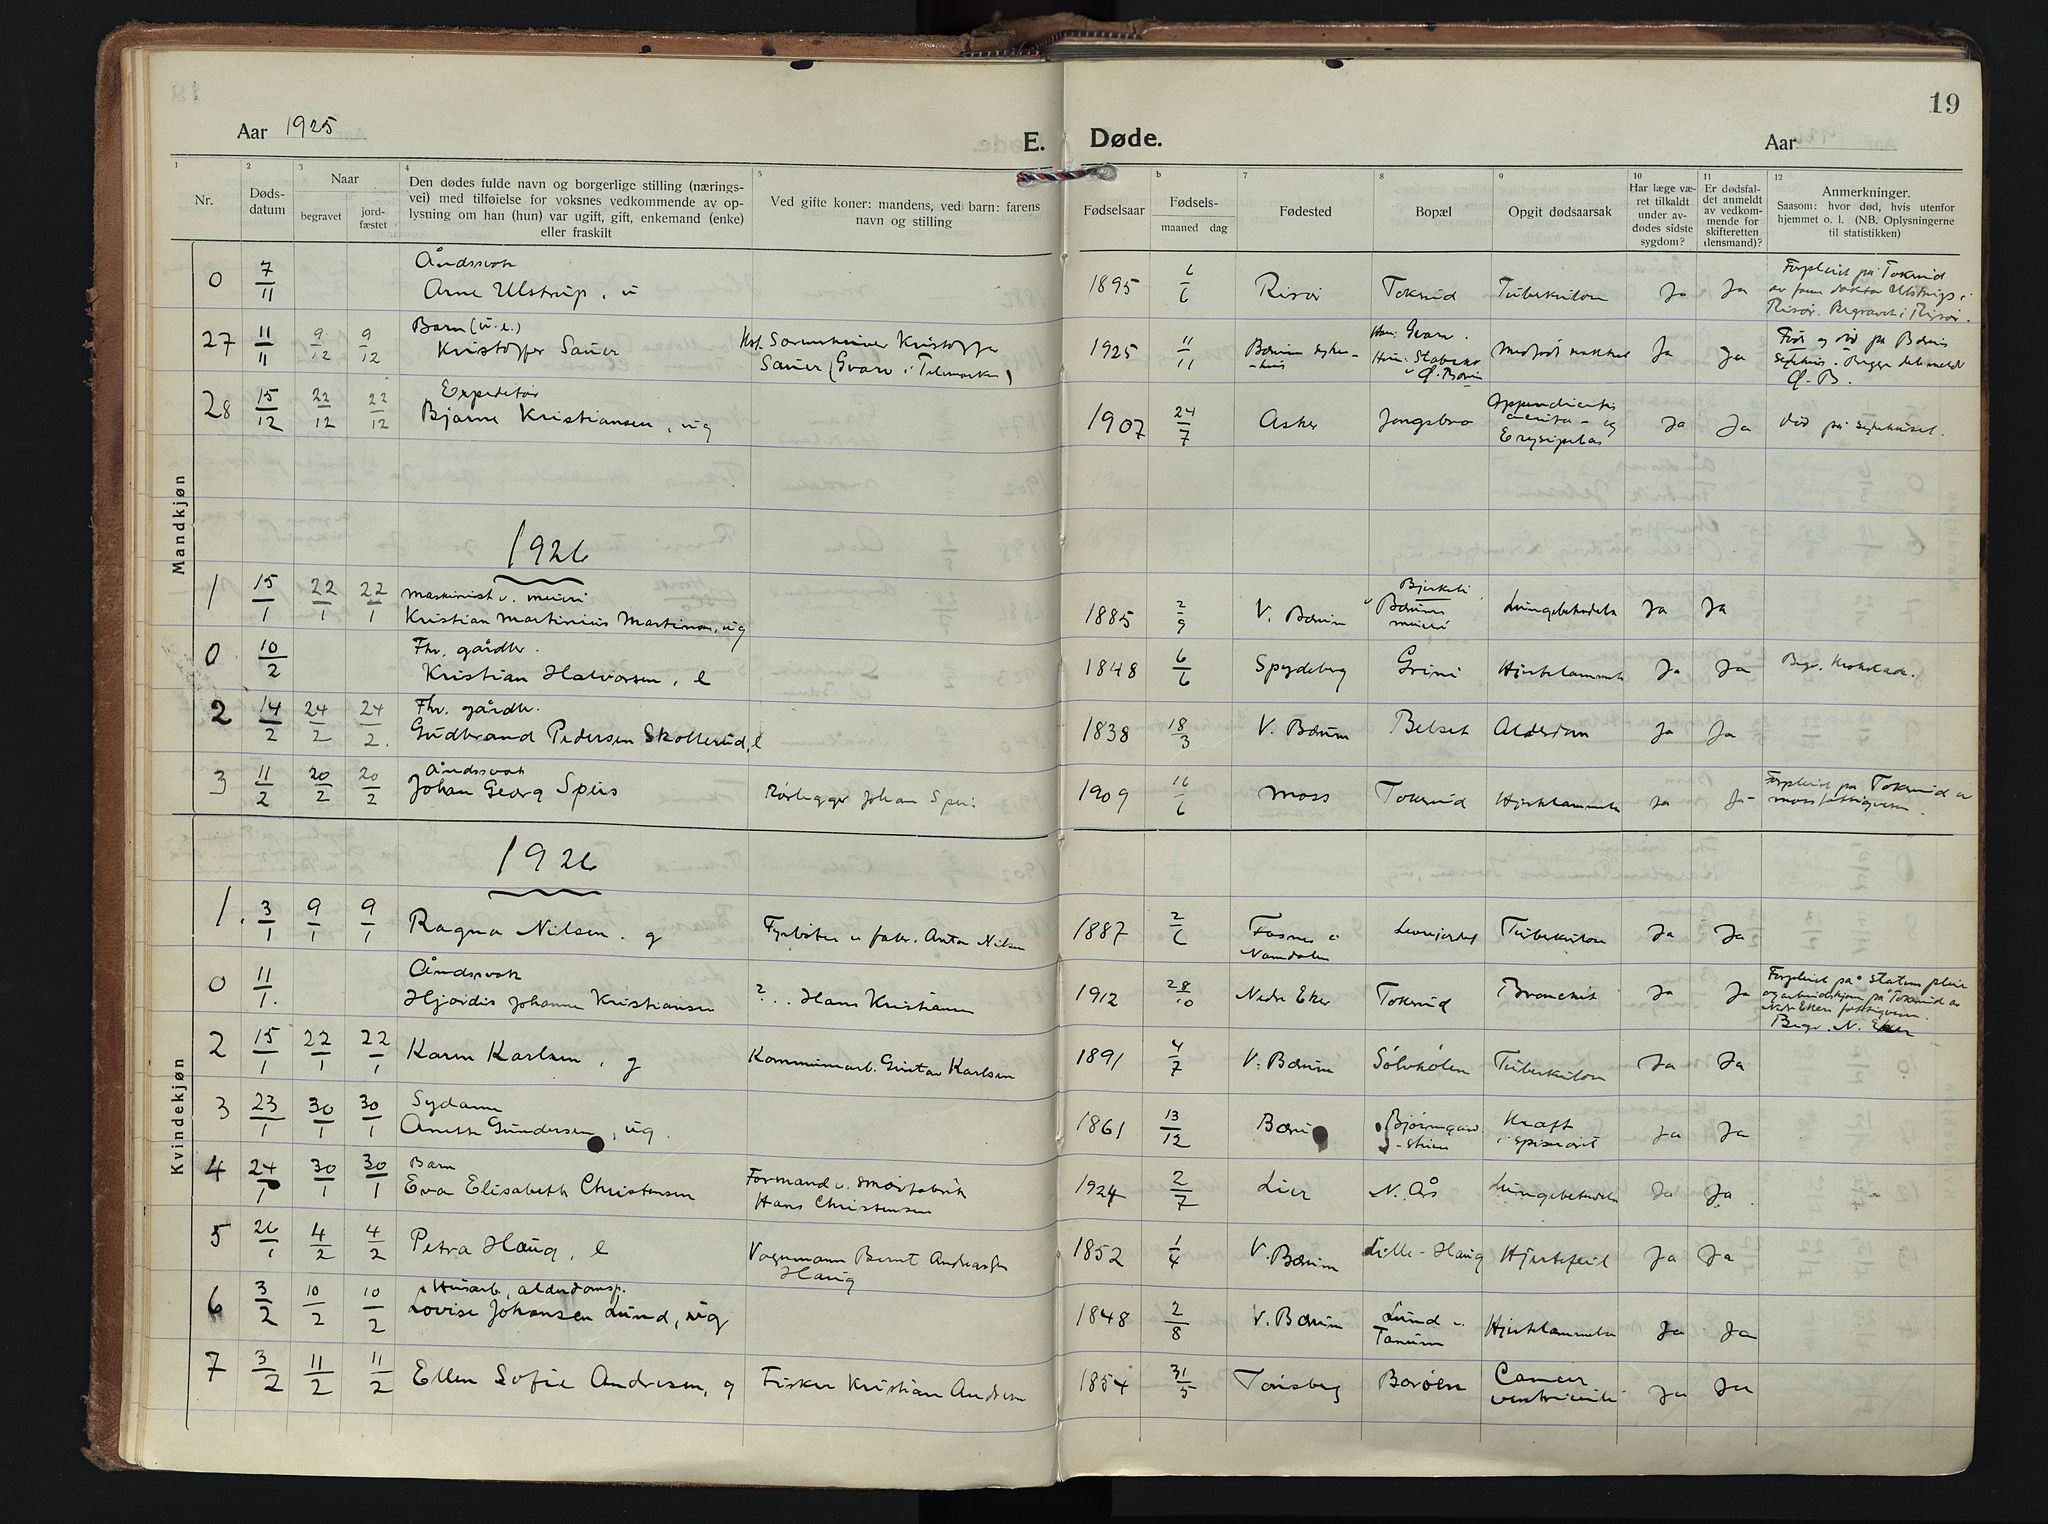 19
Aar 1925
E. Døde.
Aar
1
2
3
4
5
b
7
8
9
10
11
12
Nr.
Døds-
datum
Naar
begravet
jord-
fæstet
Den dødes fulde navn og borgerlige stilling (nærings-
vei) med tilføielse for voksnes vedkommende av op-
lysning om han (hun) var ugift, gift, enkemand (enke)
eller fraskilt
Ved gifte koner: mandens, ved barn: farens
navn og stilling
Fødselsaar
Fødsels-
maaned dag
Fødested
Bopæl
Opgit dødsaarsak
Har læge væ-
ret tilkaldt
under av-
dødes sidste
sygdom?
Er dødsfal-
det anmeldt
av vedkom-
mende for
skifteretten
(lensmand)?
Anmerkninger.
Saasom: hvor død, hvis utenfor
hjemmet o. l. (NB. Oplysningerne
til statistikken)
Mandkjøn
0 7/11 Åndssvak
Arne Ulstrup, u 1895 6/6 Risør Tokerud Tuberkulose Ja Ja Forpleiet på Tokerud
av frem doktor Ulstrup i
Risør. Begravet i Risør.
27 11/11 9/12 9/12 Barn (u.e.)
Kristoffer Sauer Kristoffer
Sauer (Gvarv i Telemarken) 1925 11/11 Bærum syke-
-hus Han: Gvarv.
Hun: Stabekk
Ø. Bærum Ja Ja Født og død på Bærums
sykehus. Begge deler meldt
Ø. B.
28 15/12 22/12 22/12 Expeditør
Bjarne Kristiansen, ug 1907 24/7 Asker Jongsbro Appendicitis
acuta - og
Erysipelas Ja Ja død på sykehuset.
1926
1 15/1 22/1 22/1 maskinist v. meieri
Kristian Martinius Martinsen, ug 1885 2/9 V. Bærum Bjerkeli
v Bærums
meieri Lungebetendelse Ja Ja
0 10/2 Fhv. gårdbr.
Kristian Halvorsen, e 1848 6/6 Spydeberg Grini Hjertelammelse Ja Ja Begr. Krokskog.
2 14/2 24/2 24/2. Fhv. gårdbr.
Gudbrand Pedersen Skollerud, e 1838 18/3 V. Bærum Belset Alderdom Ja Ja
3 11/2 20/2 20/2 Åndssvak
Johan Georg Speis Rørlegger Johan Speis 1909 16/6 Moss Tokerud Hjertelammelse Ja Ja Forpleiet på Tokerud av
Moss fattigvesen.
Kvindekjøn
1926
1. 3/1 9/1 9/1 Ragna Nilsen. g Fyrbøter v. fabr. Anton Nilsen 1887 2/6 Fosnes i
Namdalen Tuberkulose Ja Ja
0 11/1. Åndssvak
Hjørdis Johanne Kristiansen ?.. Hans Kristiansen 1912 28/10 Nedre Eker Tokerud Bronchit Ja Ja Forpleiet på Statens pleie
og arbeidshjem på Tokerud av
Nedre Ekers fattigvesen.
Begr. N. Eker
2 15/1 22/1 22/1 Karen Karlsen, g Kommunearb. Gustav Karlsen 1891 4/7 V. Bærum Sølvhølen Tuberkulose Ja Ja
3 23/1 30/1 30/1 Sydame
Anette Gundersen, ug. 1861 13/12 Bærum Bjørnegård-
-stuen Kræft
i spiserøret Ja Ja
4 24/1 30/1 30/1 Barn
Eva Elisabeth Christensen Formand v. smørfabrik
Hans Christensen 1924 2/7 Lier N. Ås Lungebetendelse Ja Ja
5 26/1 4/2 4/2 Petra Haug, e Vognmann Bernt Andreassen
Haug 1852 1/4 V. Bærum Lille-Haug Hjertefeil Ja Ja
6 3/2 10/2 10/2 Husarb, alderdomsp.
Lovise Johansen Lund, ug 1848 2/8 V. Bærum Lund v.
Tanum Hjertelammelse Ja Ja
7 3/2 11/2 11/2 Ellen Sofie Andresen, g Fisker Kristian Andresen 1854 31/5 Tønsberg Borøen Cancer
ventriculi Ja Ja